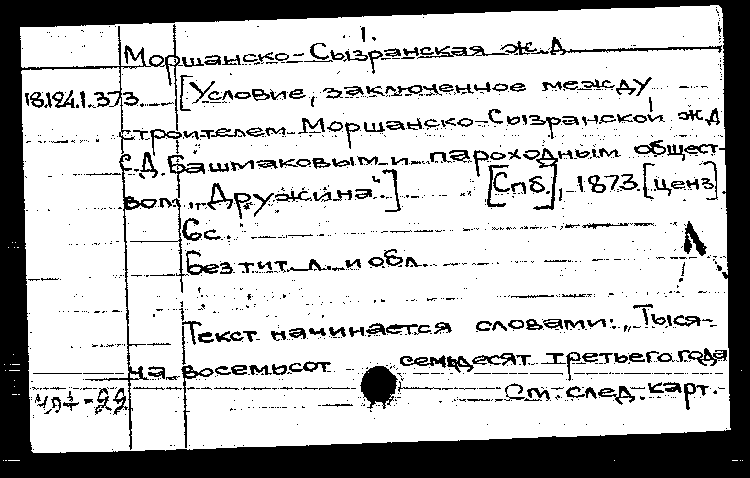 1.
Моршанско-Сызранская ж.д
18.124.1.373. [Условие, заключенное между
строителем Моршанско-Сызранской ж.д
С.Д. Башмаковым и пароходным общест-
вом „Дружина“] [Спб.], 1873 [ценз].
6с.
Без тит. л. и обл.
Текст начинается словами: „Тыся-
ча восемьсот семьдесят третьего года
См. след. карт.